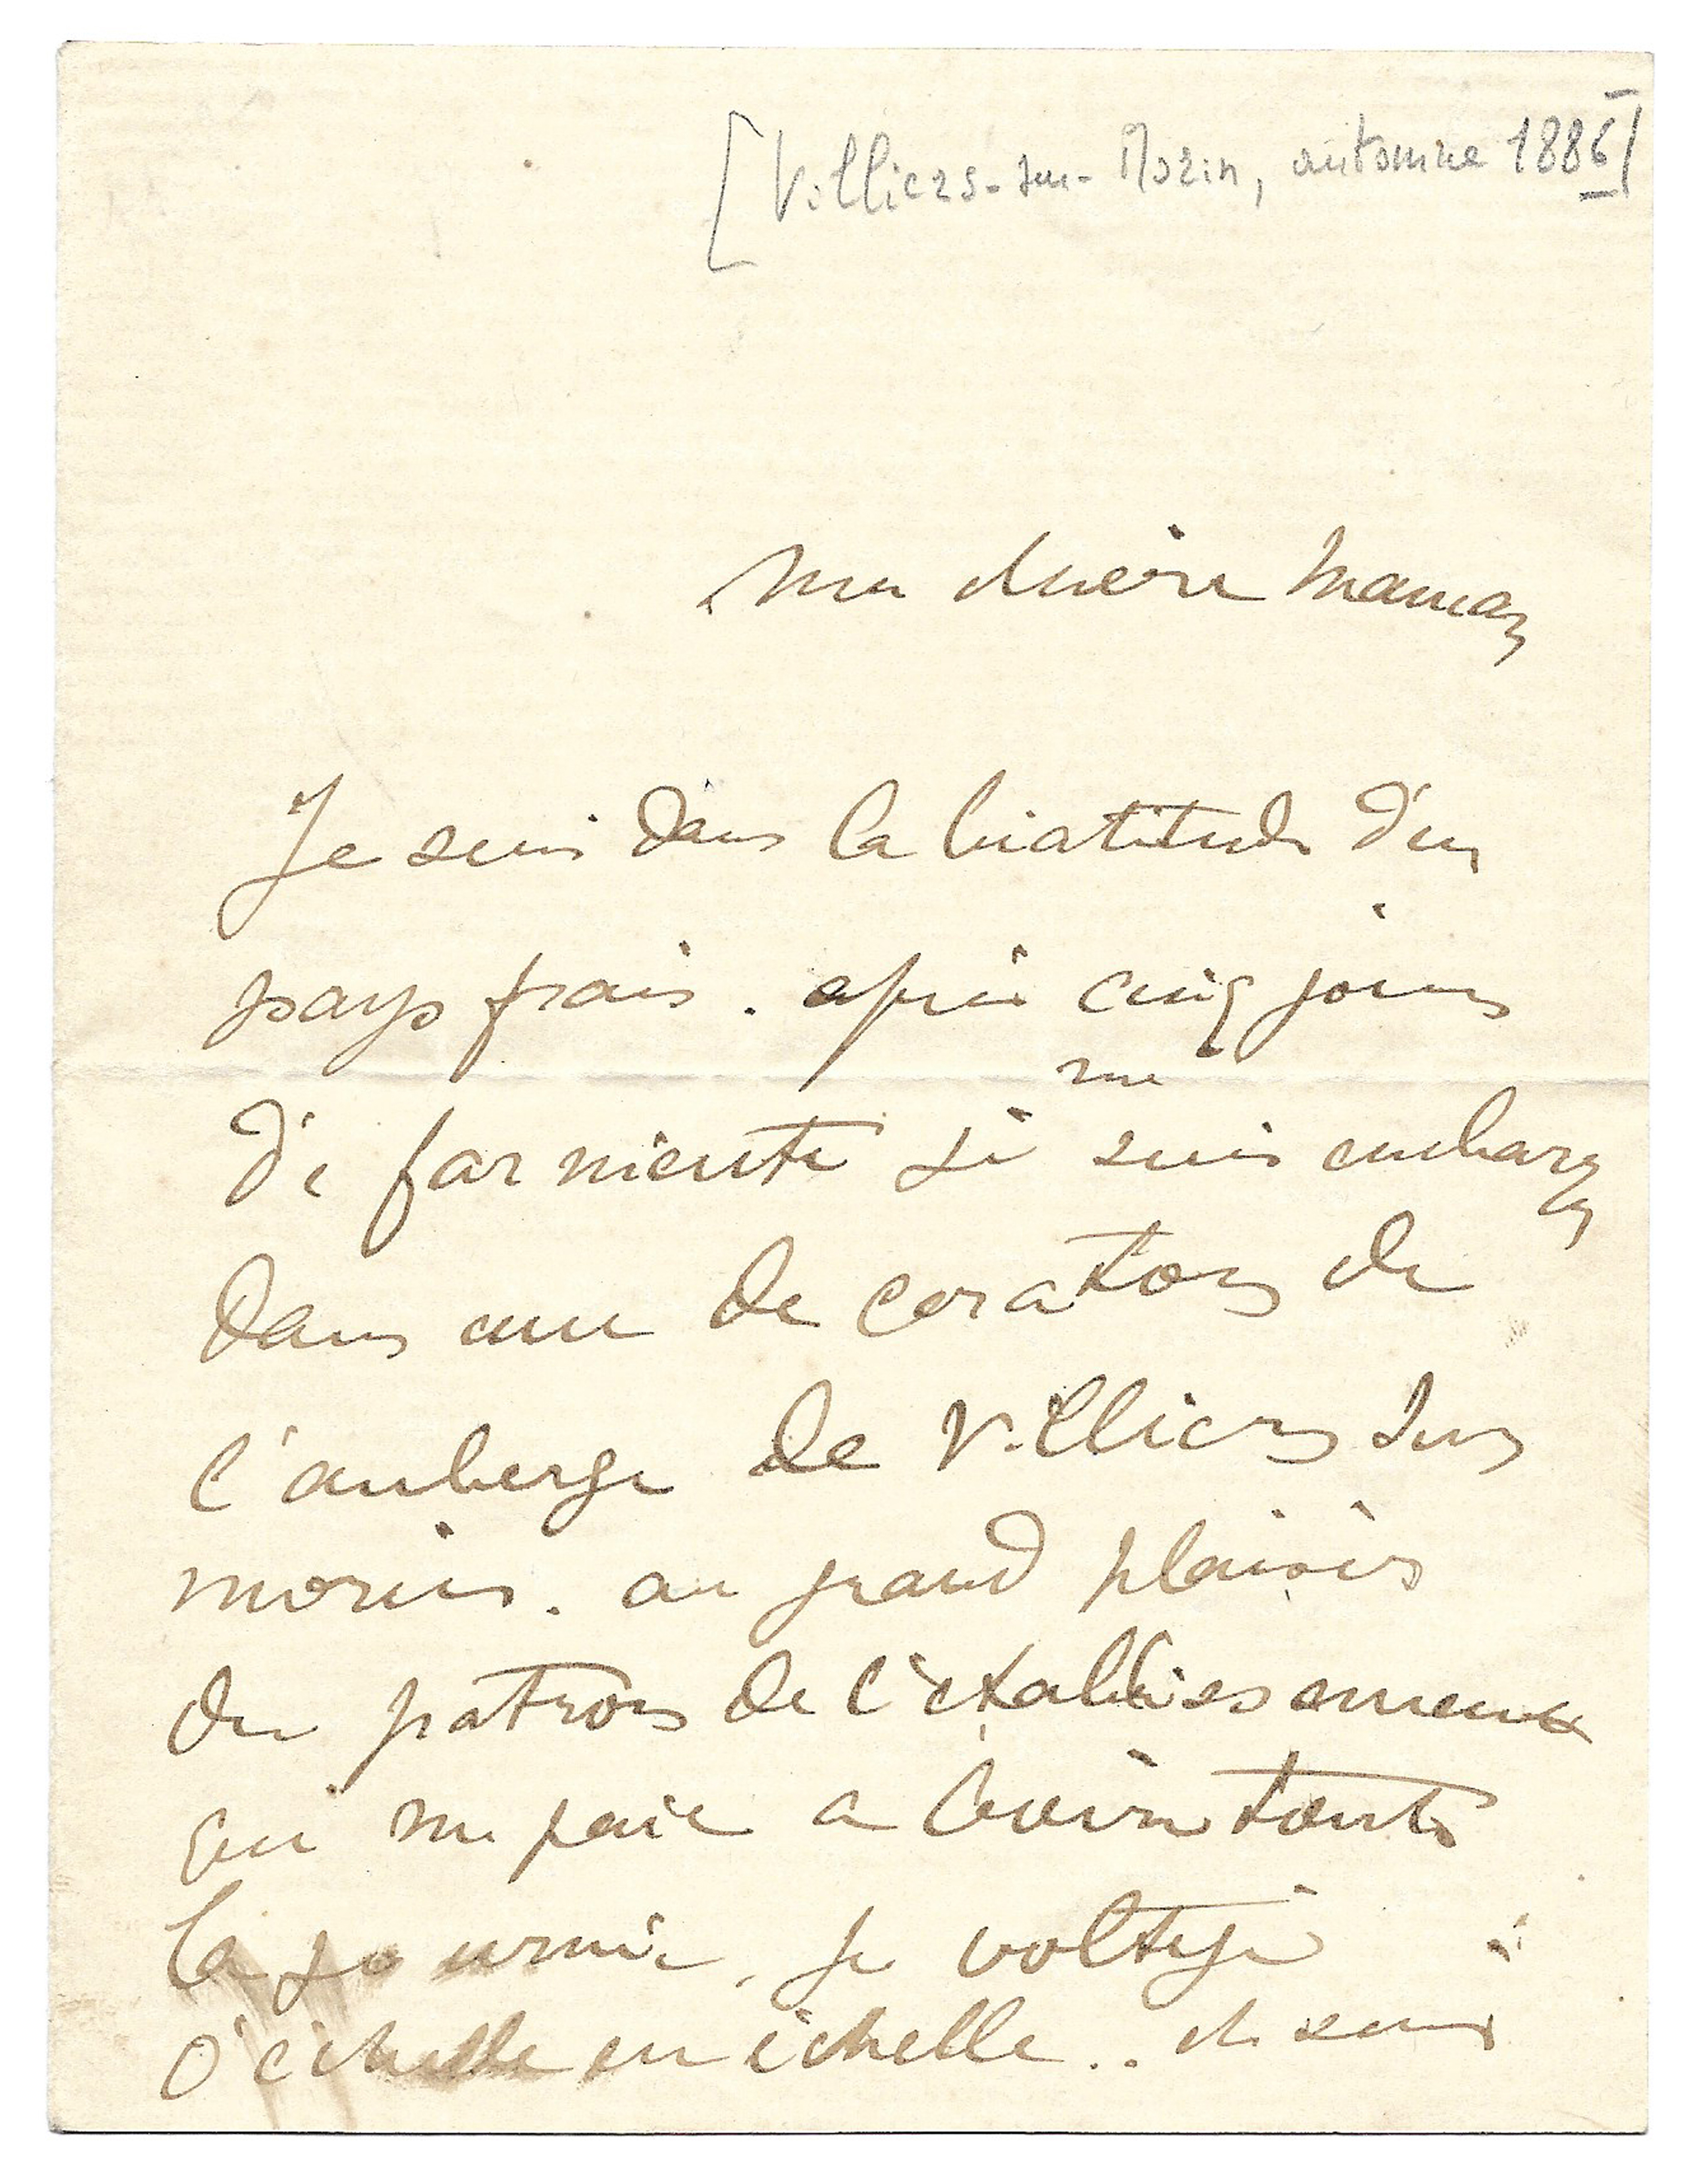 [Villiers-sur-Morin, automne 1886]
Ma chère Maman
Je suis dans la béatitude d'un
pays frais. après cinq jours
de far niente je
me
suis embarqué
dans une decoration de
l'auberge de Villiers sur
morin. au grand plaisir
du patron de l'établissement
qui me paie a boire toute
la journée, je voltige
d'échelle en échelle.. et suis